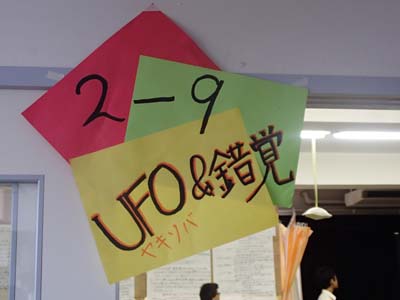 2-9
UFO&錯覚
ヤキソバ